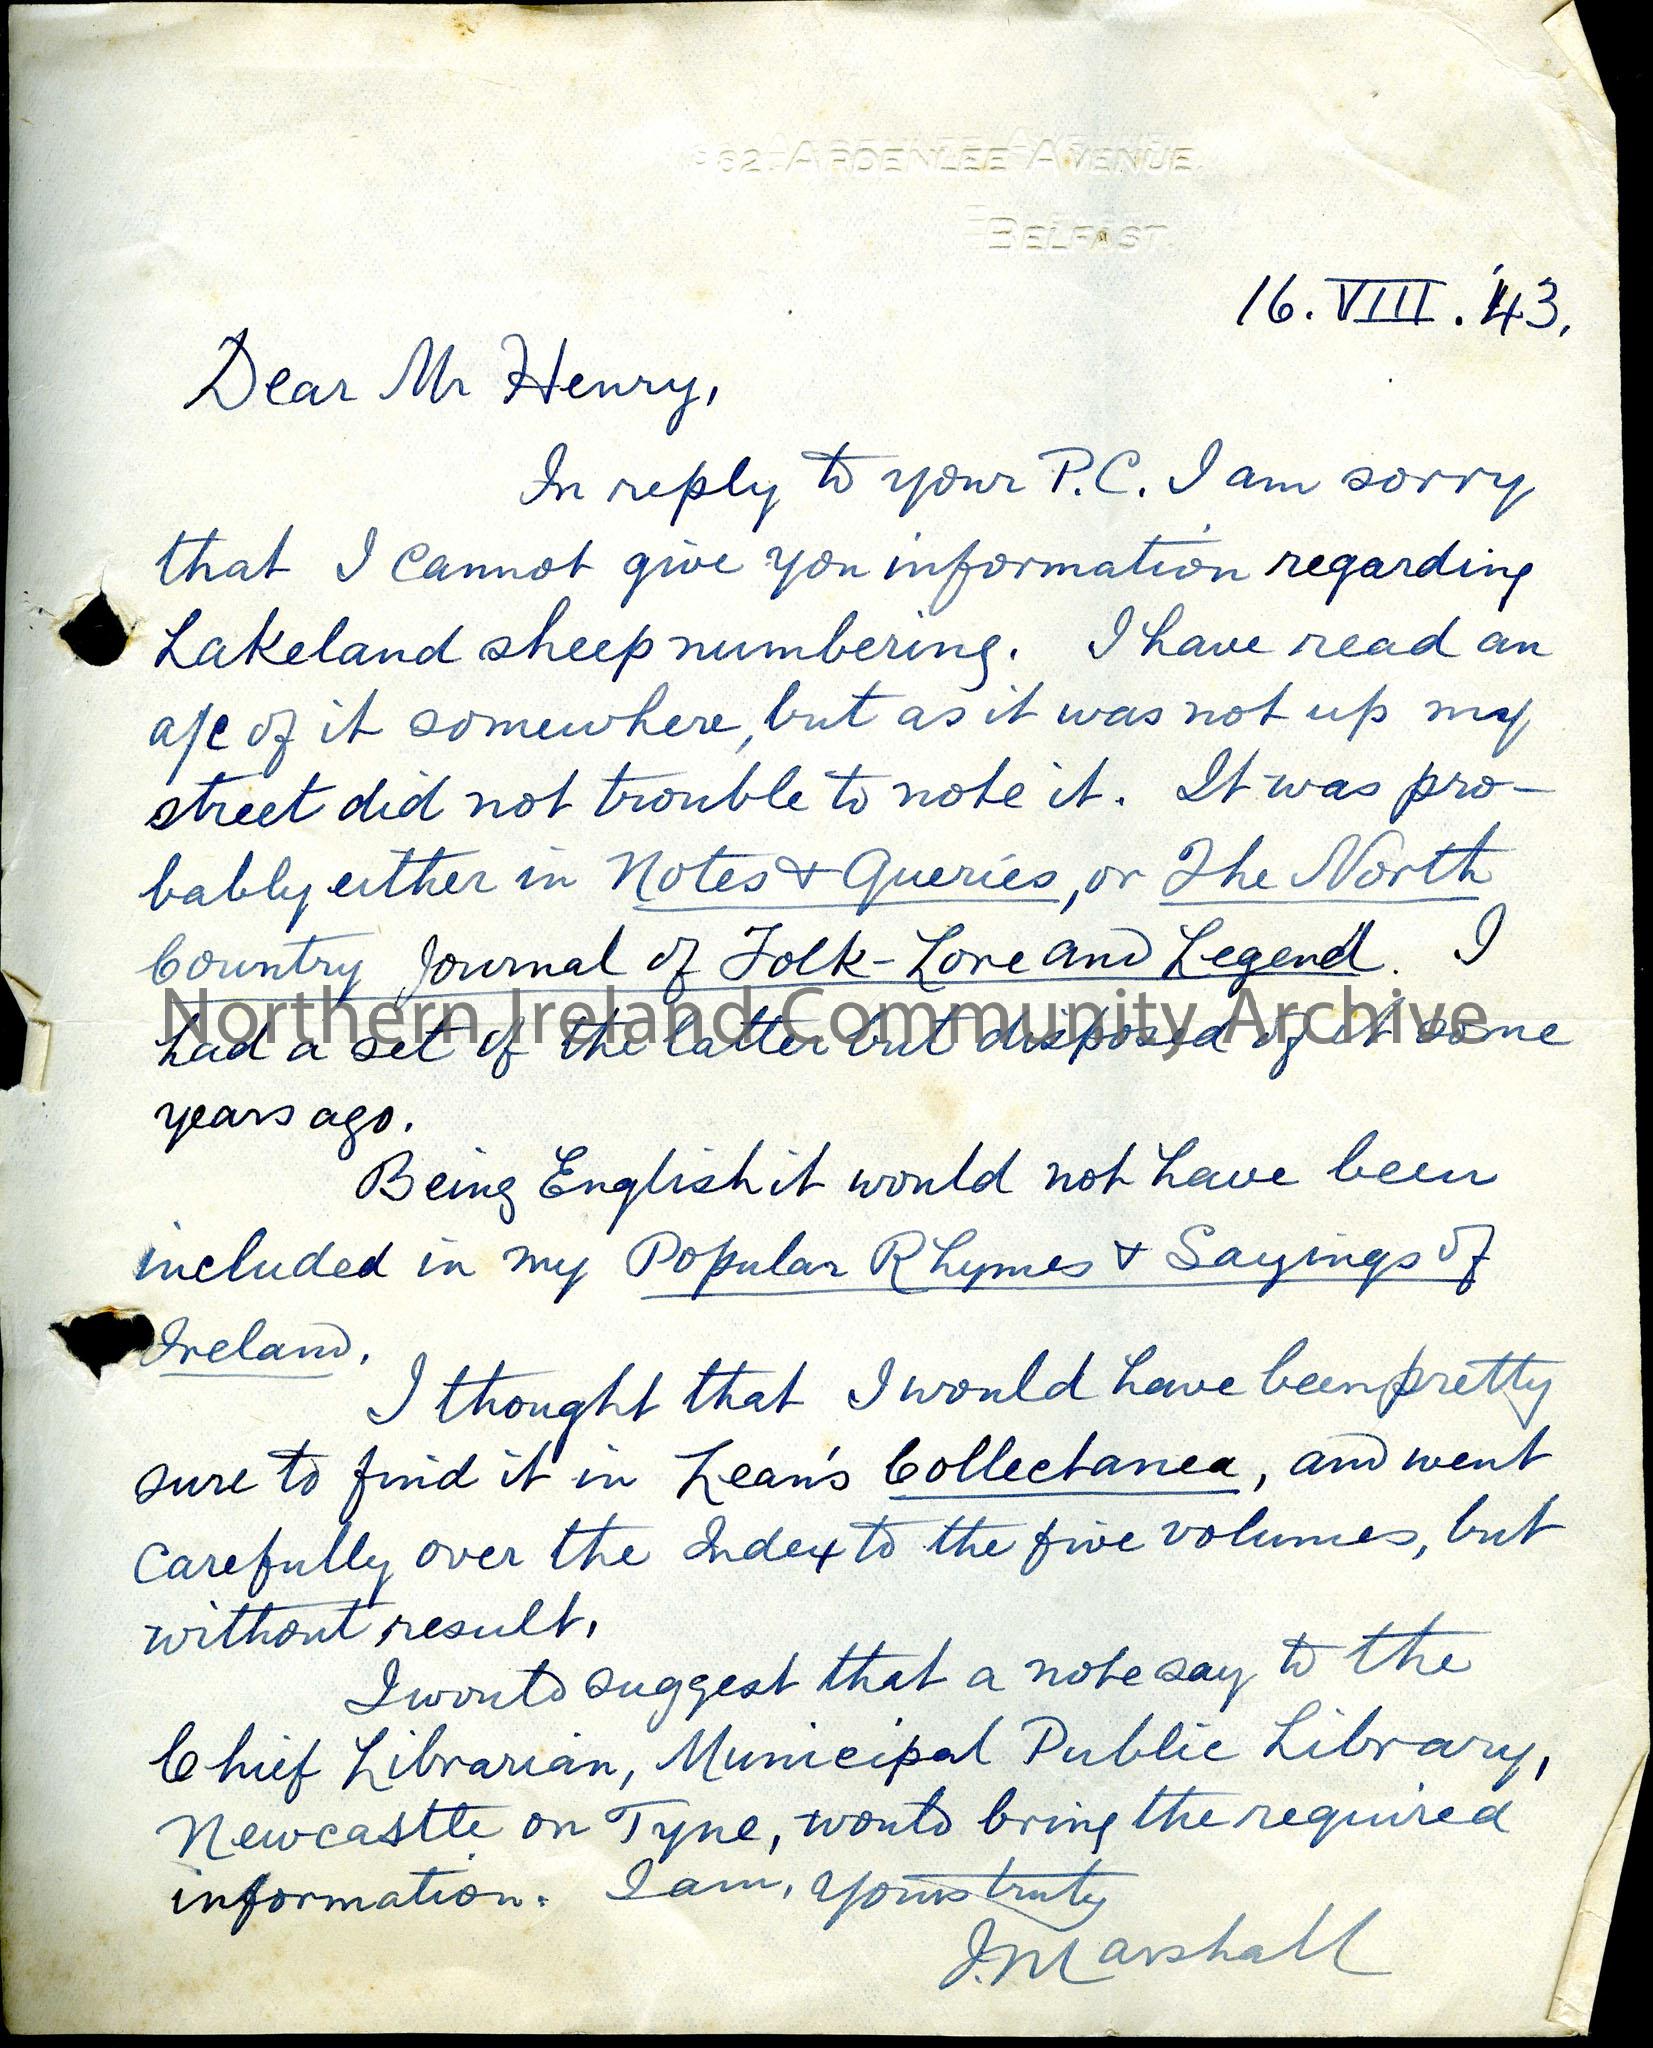 62. ARDENLEE AVENUE.
BELFAST.
16. VIII. '43.
Dear Mr Henry,
In reply to your P.C. I am sorry
that I cannot give you information regarding
Lakeland sheep numbering. I have read an
a/c of it somewhere, but as it was not up my
street did not trouble to note it. It was pro-
bably either in Notes & Queries, or The North
Country Journal of Folk-Lore and Legend. I
Northern Ireland Community Archive
had a set of the latter but disposed of it some
years ago.
Being English it would not have been
included in my Popular Rhymes & Sayings of
Ireland.
I thought that I would have been pretty
sure to find it in Lean's Collectanea, and went
carefully over the Index to the five volumes, but
without result.
I would suggest that a note say to the
Chief Librarian, Municipal Public Library,
Newcastle on Tyne, would bring the required
information. I am, yours truly
J. Marshall